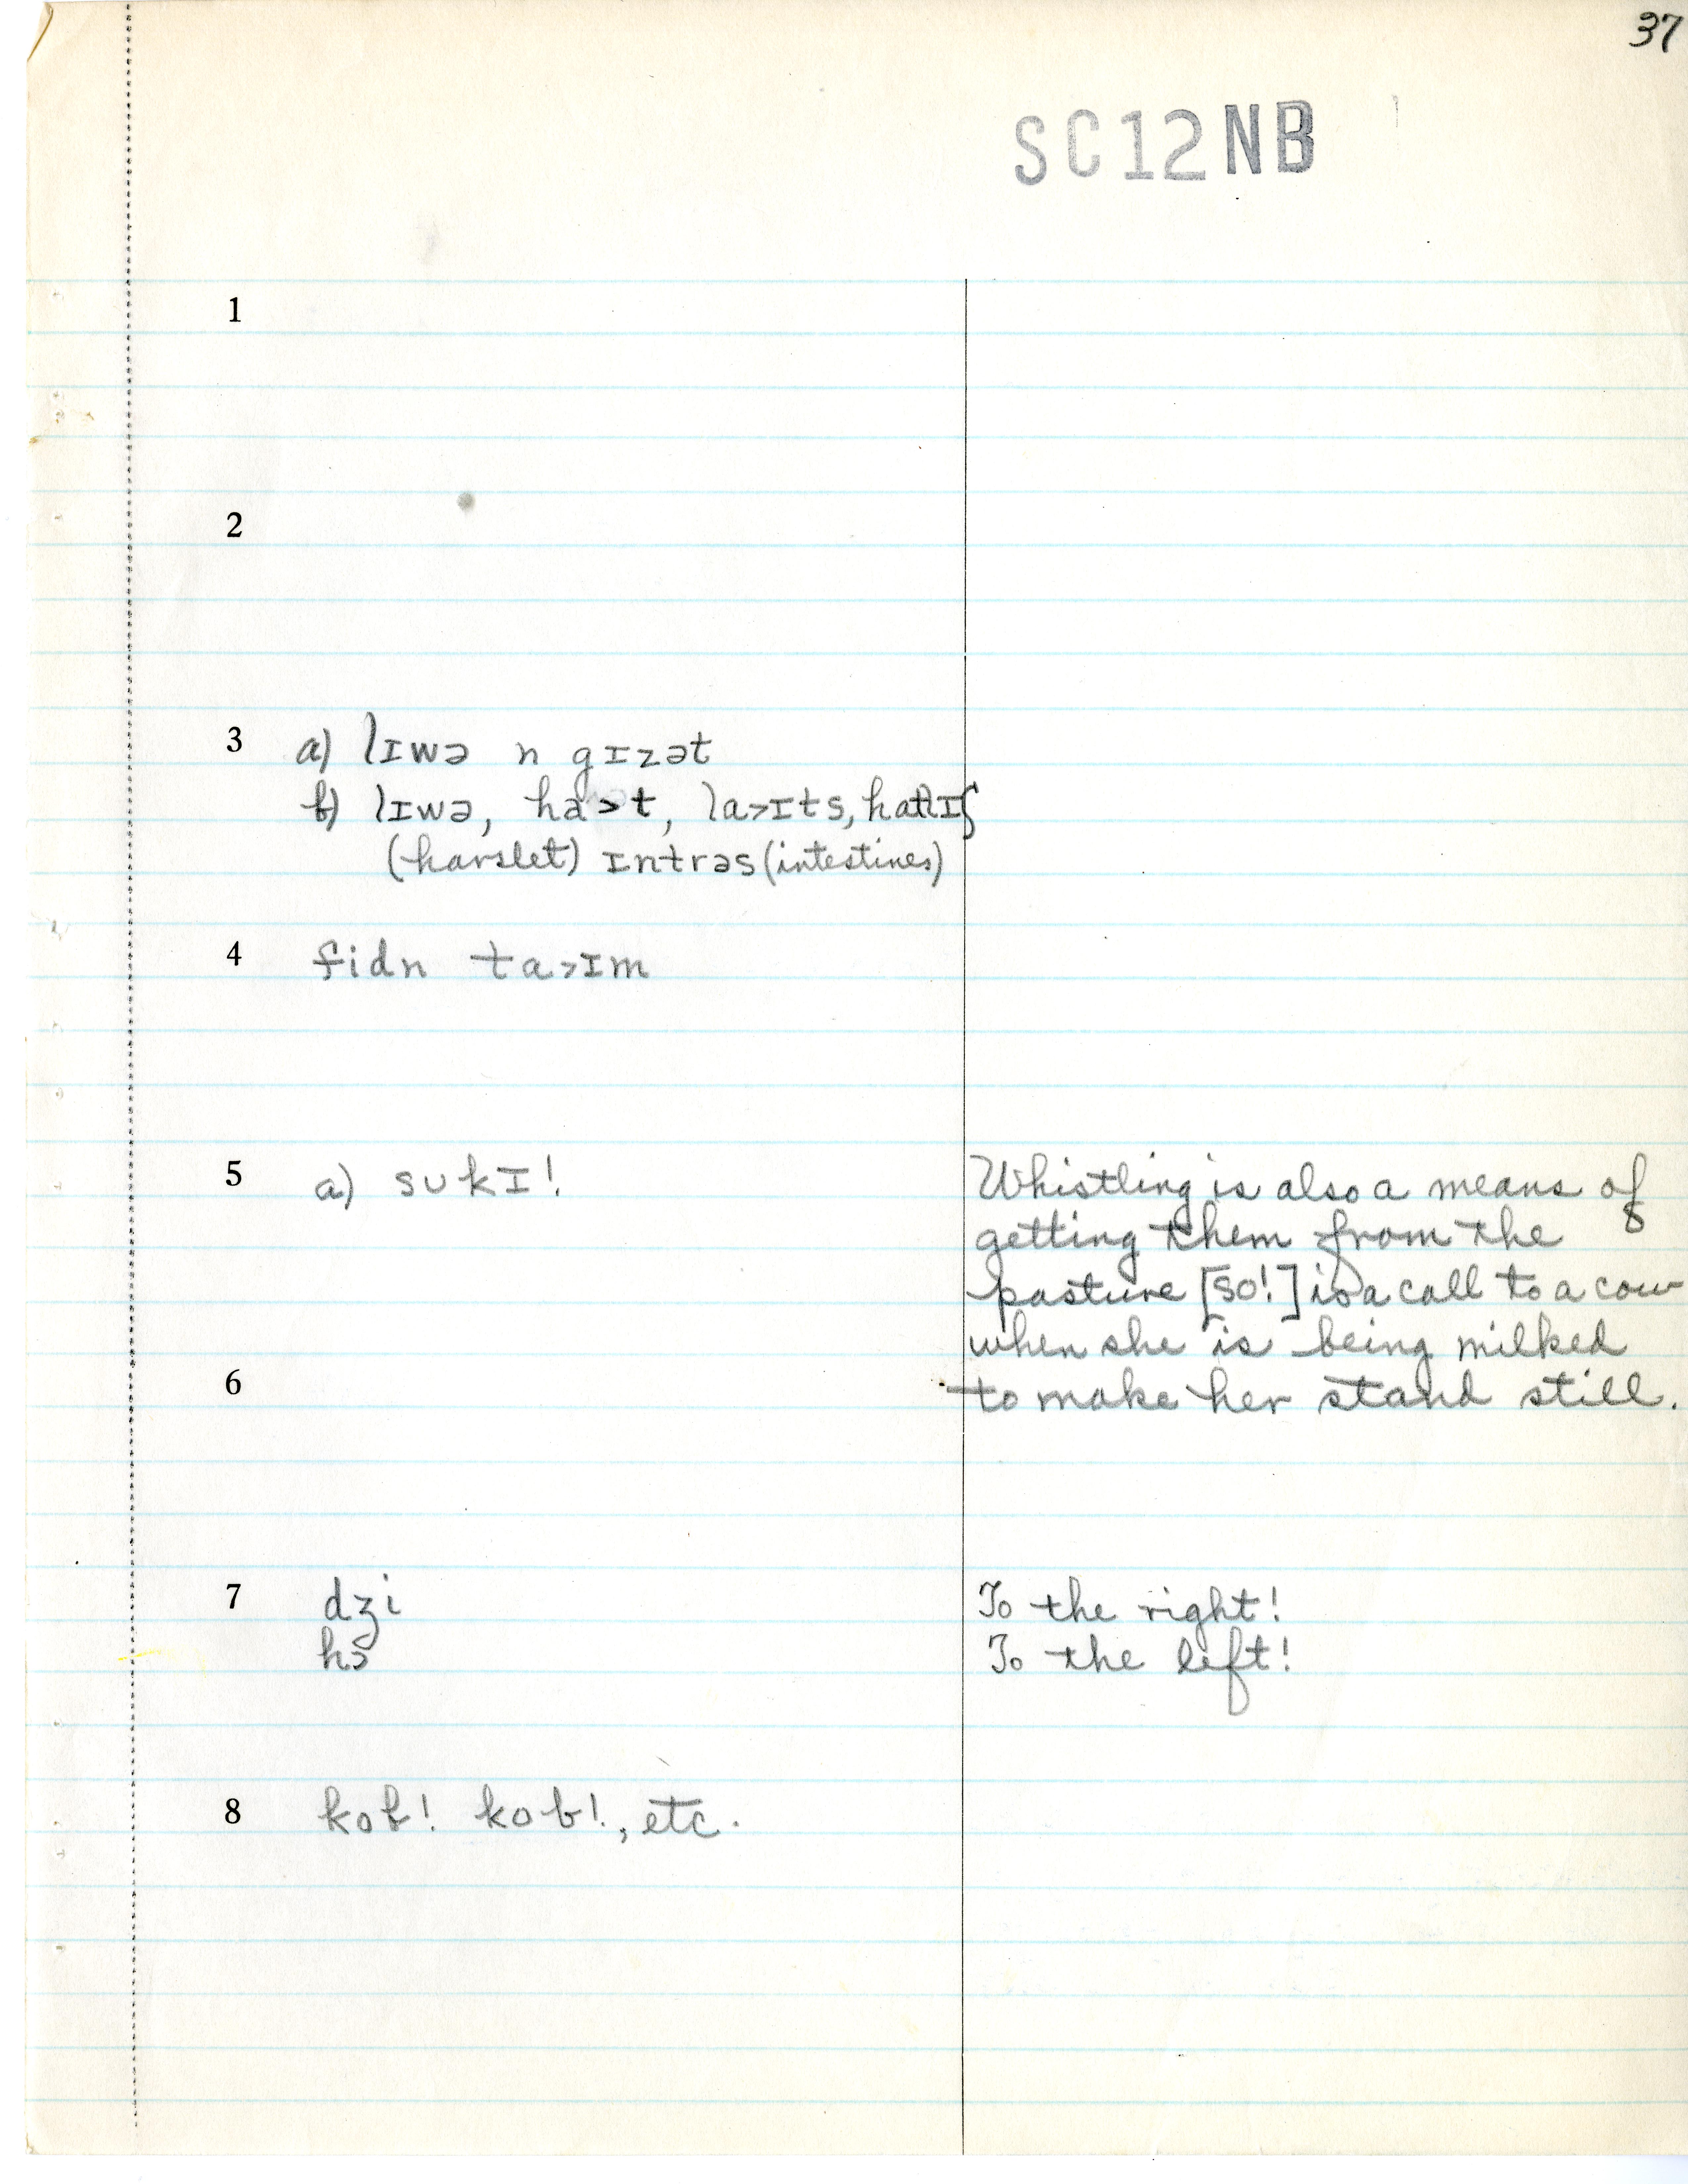 37
SC12NB
1
2
3 a) lɪwə n gɪzət
b) lɪwə, ha>t, la>ɪts,
(harslet) ɪntrəs (intestines)
4 fidn ta>ɪm
5 a) sukɪ! Whistling is also a means of
getting them from the
pasture [so!] is a call to a cow
when she is being milked
6 to make her stand still.
7 dʒi To the right!
hɔ To the left!
8 kob! kob!, etc.